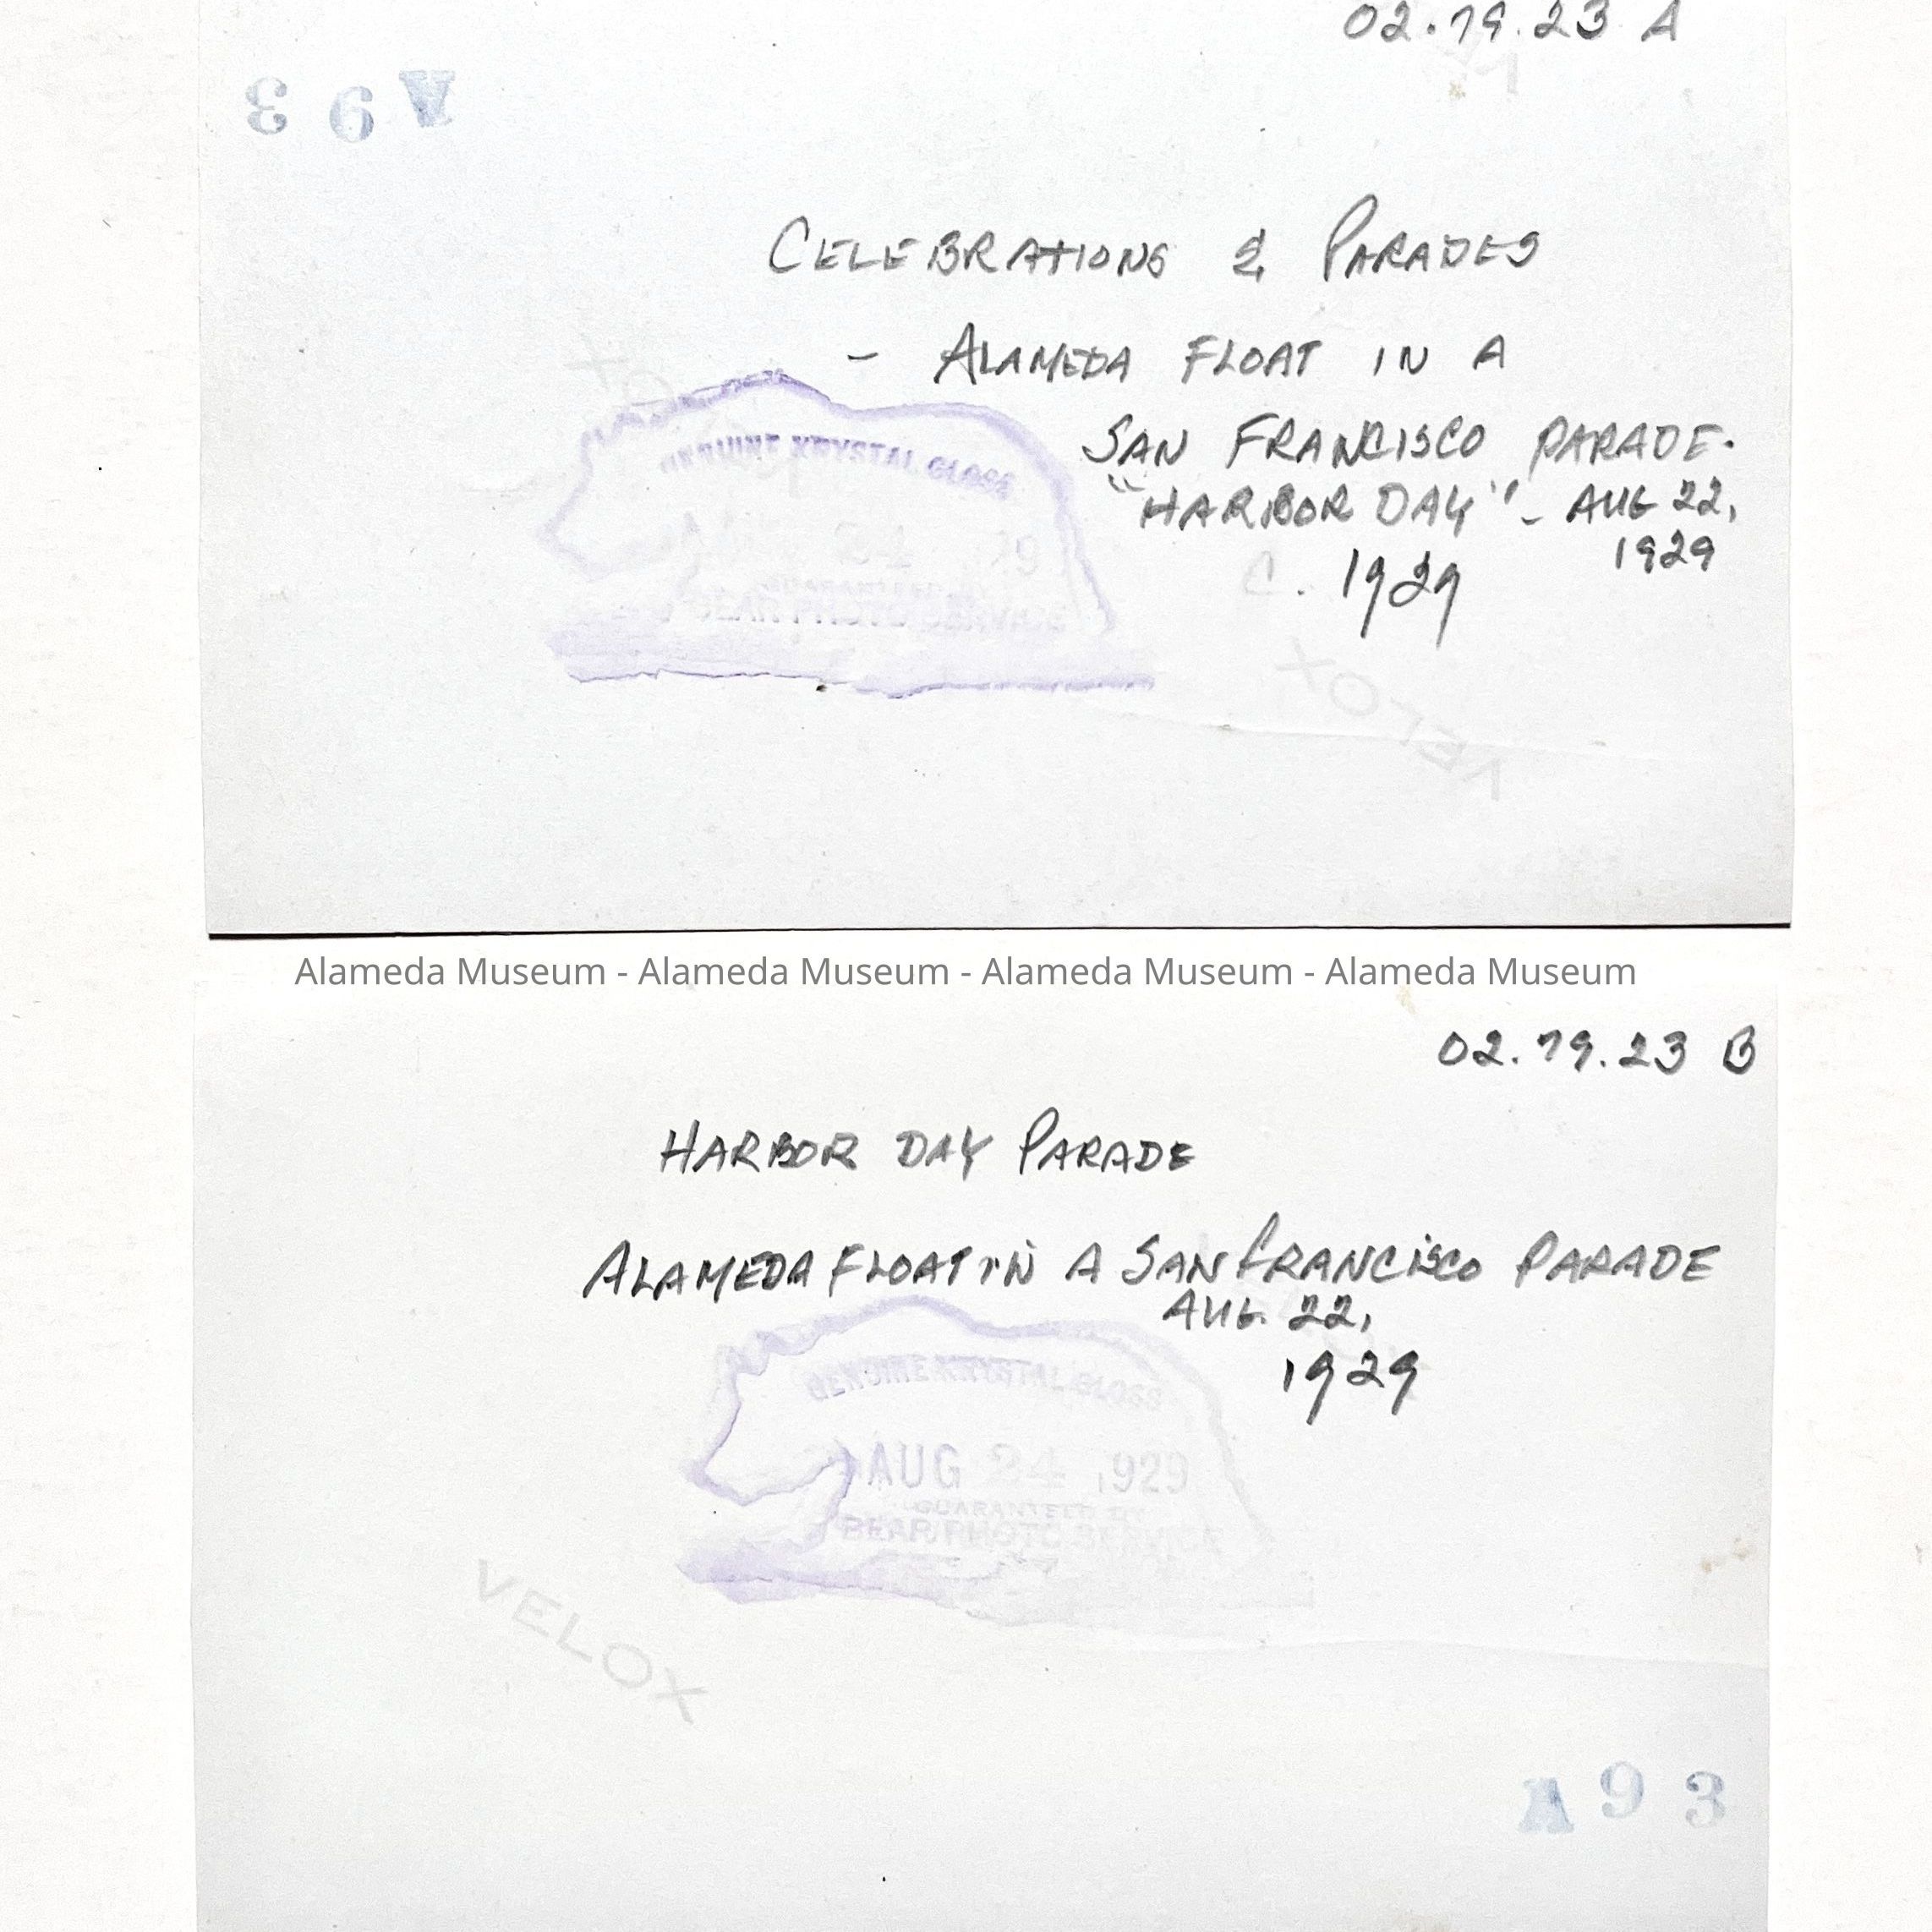 02.79.23 A
A93
CELEBRATIONS & PARADES
- ALAMEDA FLOAT IN A
SAN FRANCISCO PARADE.
"HARBOR DAY" - AUG 22,
1929
C. 1929
GENUINE KRYSTAL GLOSS
24 19
GUARANTEED BY
BEAR PHOTO SERVICE
VELOX
Alameda Museum - Alameda Museum - Alameda Museum - Alameda Museum
02.79.23 B
HARBOR DAY PARADE
ALAMEDA FLOAT IN A SAN FRANCISCO PARADE
AUG. 22,
1929
GENUINE KRYSTAL GLOSS
AUG 24 1929
GUARANTEED BY
BEAR PHOTO SERVICE
VELOX
A93